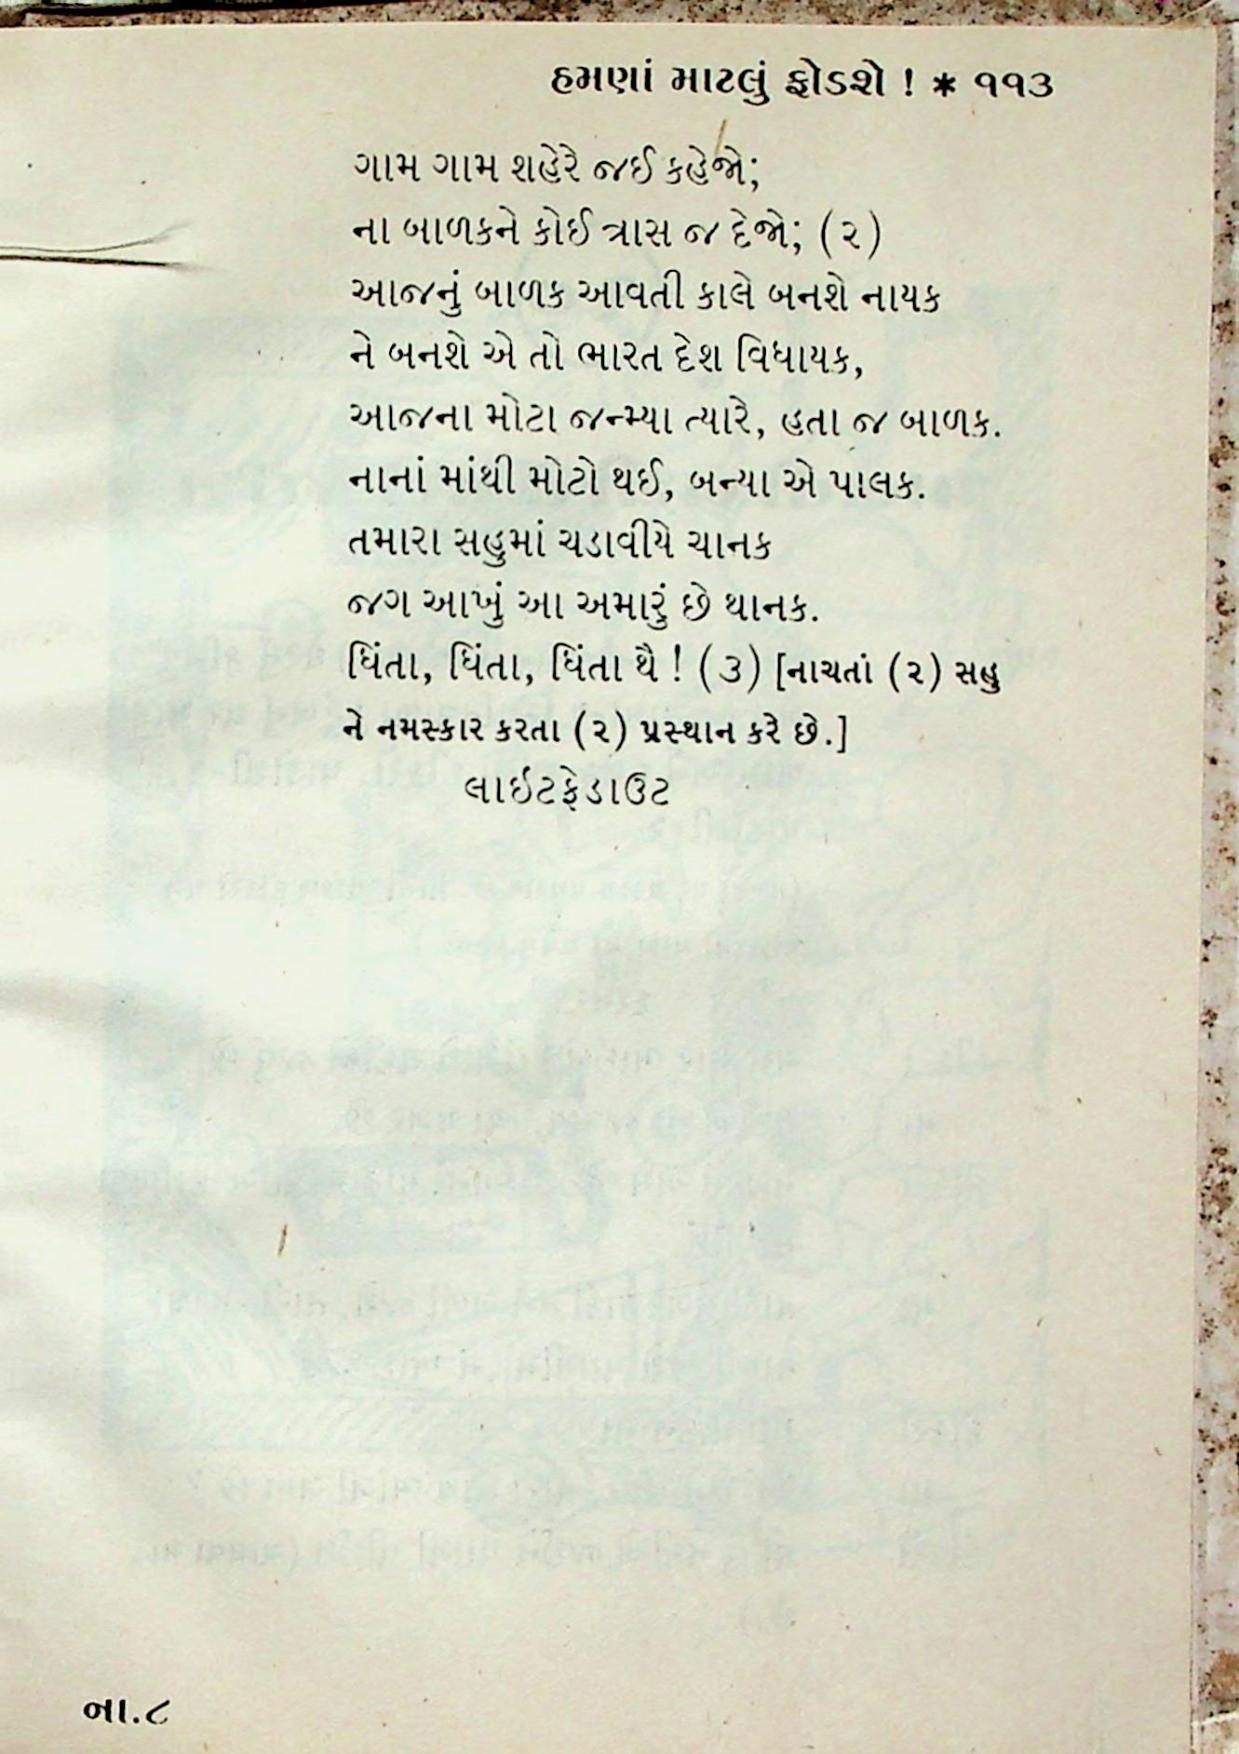 હમણાં માટલું ફોડશે ! * ૧૧૩
ગામ ગામ શહેરે જઈ કહેજો;
ના બાળકને કોઈ ત્રાસ જ દેજો; (૨)
આજનું બાળક આવતી કાલે બનશે નાયક
ને બનશે એ તો ભારત દેશ વિધાયક,
આજના મોટા જન્મ્યા ત્યારે, હતા જ બાળક.
નાનાં માંથી મોટો થઈ, બન્યા એ પાલક.
તમારા સહુમાં ચડાવીયે ચાનક
જગ આખું આ અમારું છે થાનક.
ધિંતા, ધિંતા, ધિંતા થૈ ! (૩) [નાચતાં (૨) સહુ
ને નમસ્કાર કરતા (૨) પ્રસ્થાન કરે છે.]
લાઇટફેડાઉટ
ના.૮